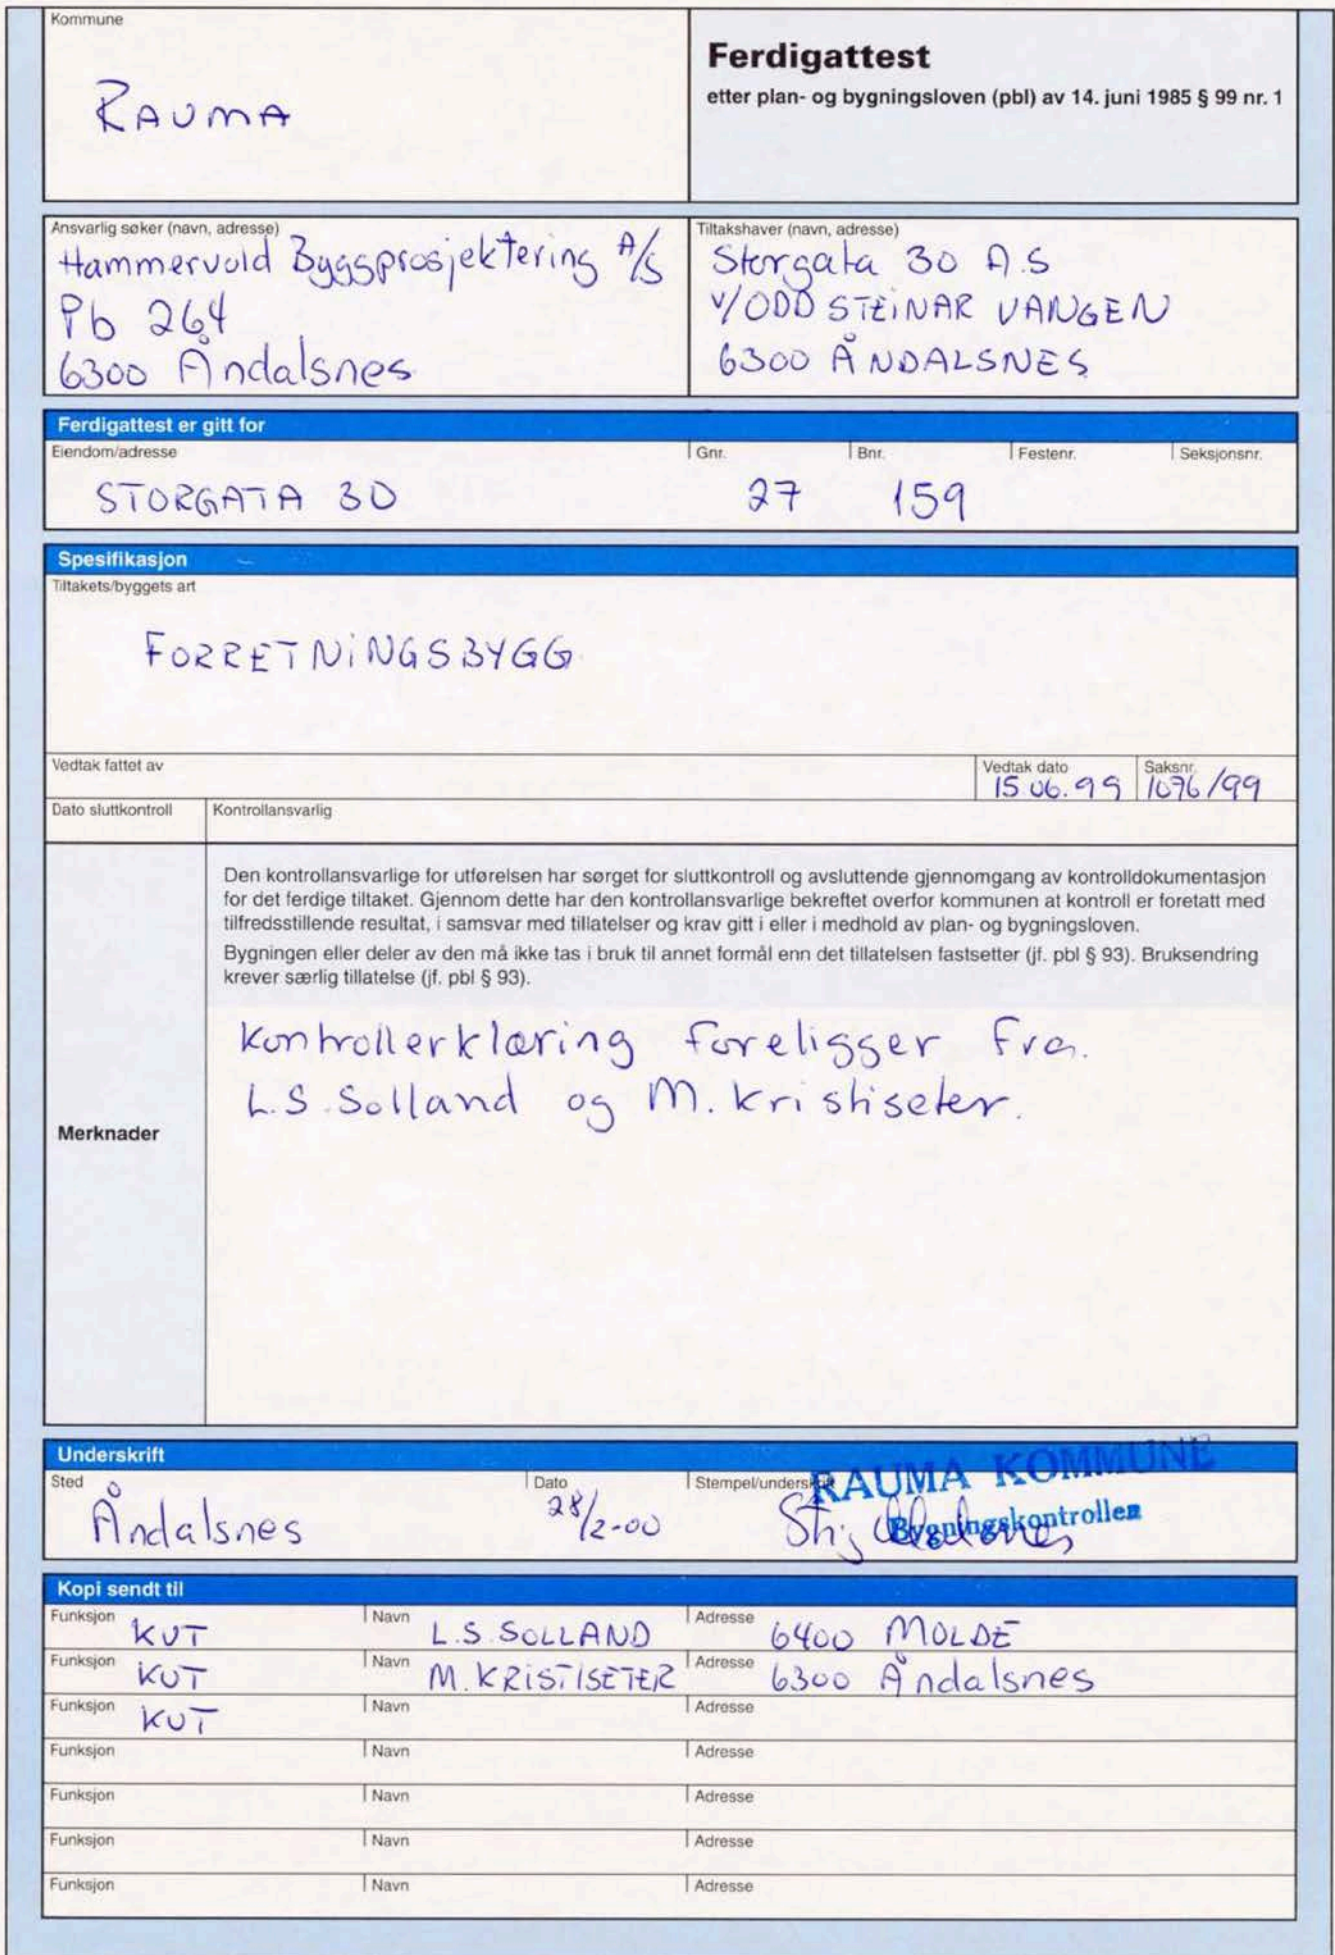 Kommune
RAUMA
Ferdigattest
etter plan- og bygningsloven (pbl) av 14. juni 1985 § 99 nr. 1
Ansvarlig søker (navn, adresse)
Hammervold Byggprosjektering A/S
Pb 264
6300 Åndalsnes
Tiltakshaver (navn, adresse)
Storgata 30 A.S
V/ODD STEINAR VANGEN
6300 ÅNDALSNES
Ferdigattest er gitt for
Eiendom/adresse Gnr. Bnr. Festenr. Seksjonsnr.
STORGATA 30 27 159
Spesifikasjon
Tiltakets/byggets art
FORRETNINGSBYGG
Vedtak fattet av Vedtak dato Saksnr.
15.06.99 1076/99
Dato sluttkontroll Kontrollansvarlig
Den kontrollansvarlige for utførelsen har sørget for sluttkontroll og avsluttende gjennomgang av kontrolldokumentasjon
for det ferdige tiltaket. Gjennom dette har den kontrollansvarlige bekreftet overfor kommunen at kontroll er foretatt med
tilfredsstillende resultat, i samsvar med tillatelser og krav gitt i eller i medhold av plan- og bygningsloven.
Bygningen eller deler av den må ikke tas i bruk til annet formål enn det tillatelsen fastsetter (jf. pbl § 93). Bruksendring
krever særlig tillatelse (jf. pbl § 93).
Kontrollerklæring foreligger fra.
L.S. Solland og M. Kristiseter.
Merknader
Underskrift
Sted Dato Stempel/underskrift
RAUMA KOMMUNE
Bygningskontrollen
Åndalsnes 28/2-00 Stig
Kopi sendt til
Funksjon KUT Navn L.S. SOLLAND Adresse 6400 MOLDE
Funksjon KUT Navn M. KRISTISETER Adresse 6300 Åndalsnes
Funksjon KUT Navn Adresse
Funksjon Navn Adresse
Funksjon Navn Adresse
Funksjon Navn Adresse
Funksjon Navn Adresse